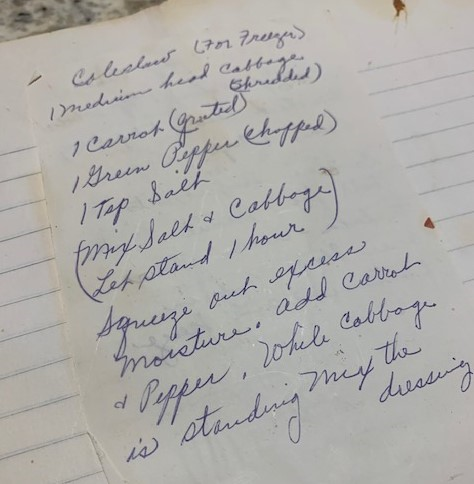 Coleslaw (For Freezer)
1 Medium head Cabbage
Shredded)
1 Carrot (grated)
1 Green Pepper (chopped)
1 Tsp Salt
(Mix Salt & Cabbage)
(Let stand 1 hour)
Squeeze out excess
moisture. add carrot
& Pepper. While cabbage
is standing mix the
dressing